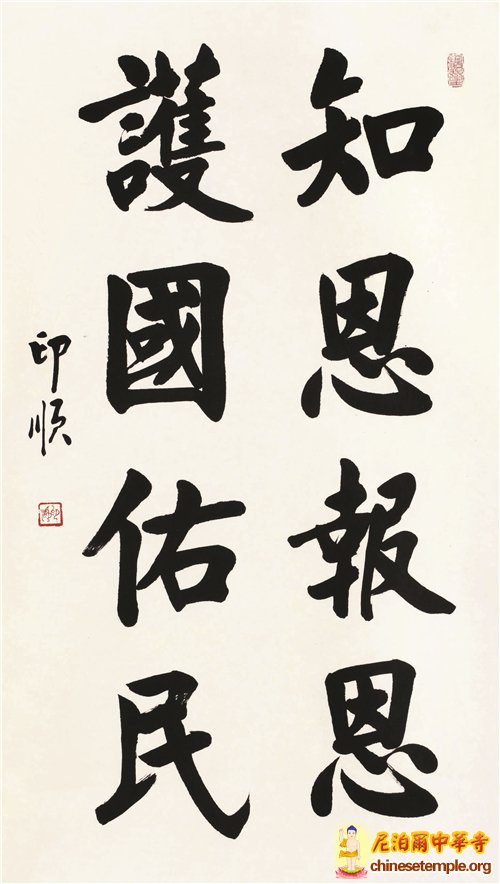 知恩報恩
護國佑民
印順
尼泊爾中華寺
chinesetemple.org